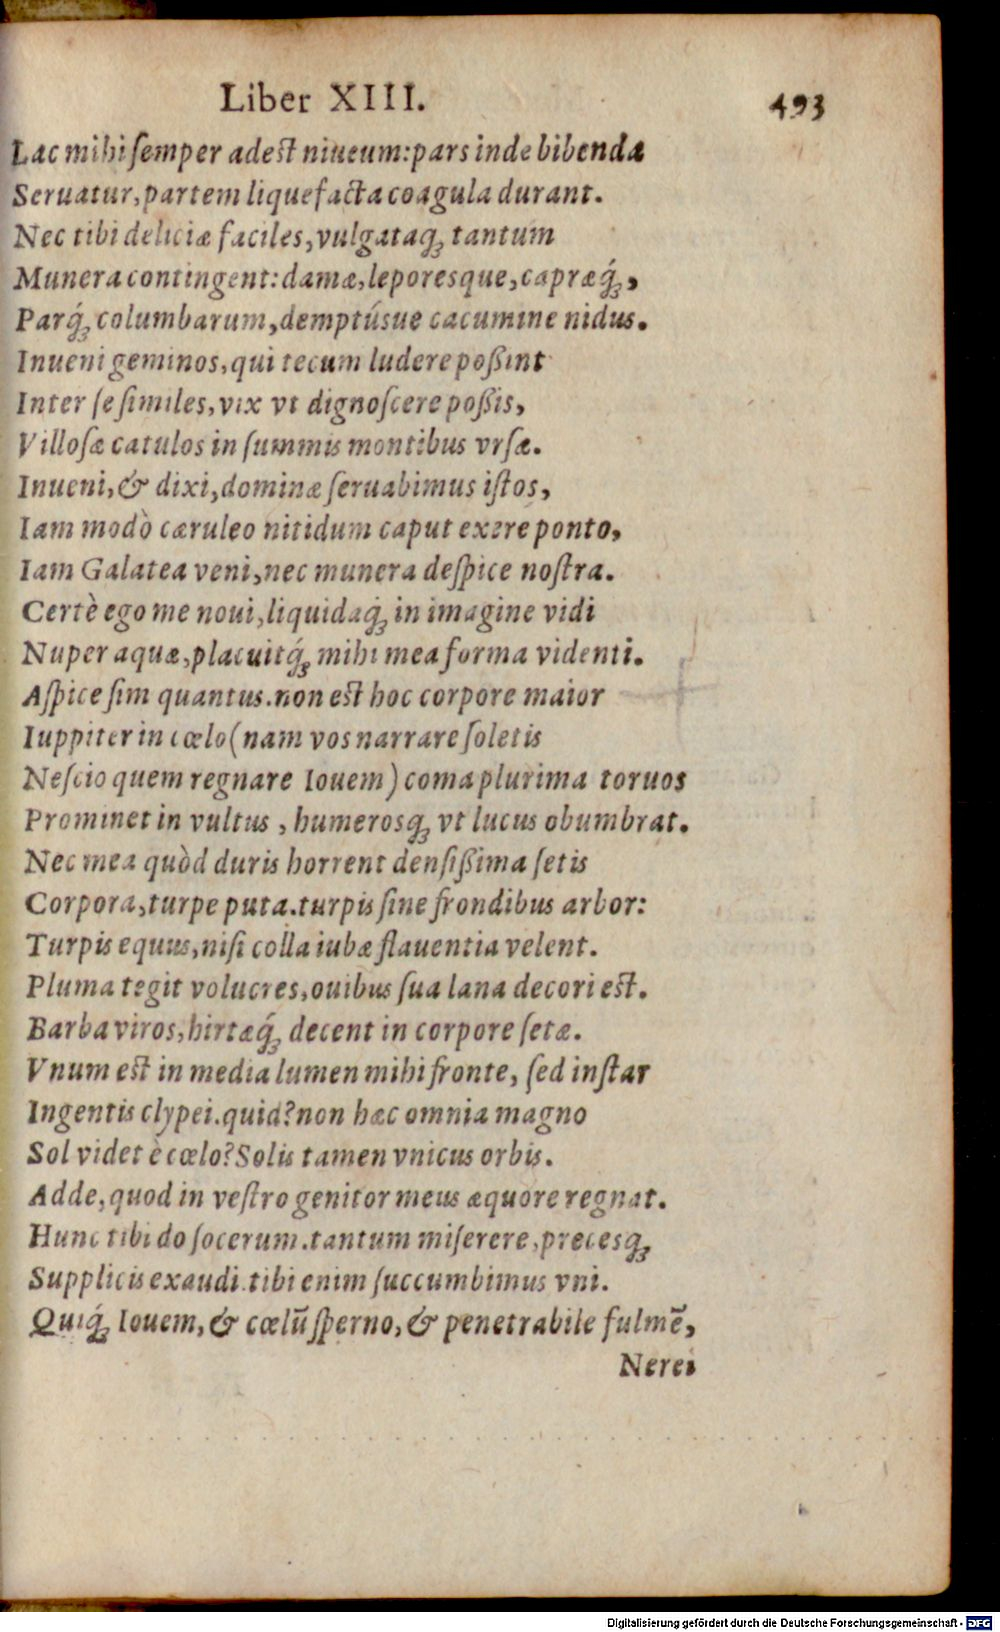 Liber XIII. 493
Lac mihi ſemper adest niueum:pars inde bibenda
Seruatur,partem liquefacta coagula durant.
Nec tibi deliciæ faciles,vulgataq́ꝫ tantum
Munera contingent:damæ,leporesque,capræq́ꝫ,
Parq́ꝫ columbarum,demptúsue cacumine nidus.
Inueni geminos,qui tecum ludere poßint
Inter ſe ſimiles,vix vt dignoſcere poßis,
Villoſæ catulos in ſummis montibus vrſæ.
Inueni,& dixi,dominæ ſeruabimus iſtos,
Iam modò cæruleo nitidum caput exere ponto,
Iam Galatea veni,nec munera deſpice noſtra.
Certè ego me noui,liquidaq́ꝫ in imagine vidi
Nuper aquæ,placuitq́ꝫ mihi mea forma videnti.
Aſpice ſim quantus.non est hoc corpore maior
Iuppiter in cœlo(nam vos narrare ſoletis
Neſcio quem regnare Iouem)coma plurima toruos
Prominet in vultus , humerosqꝫ vt lucus obumbrat.
Nec mea quòd duris horrent denſißima ſetis
Corpora,turpe puta.turpis ſine frondibus arbor:
Turpis equus,niſi colla iubæ flauentia velent.
Pluma tegit volucres,ouibus ſua lana decori est.
Barba viros,hirtæq́ꝫ decent in corpore ſetæ.
Vnum est in media lumen mihi fronte, ſed inſtar
Ingentis clypei.quid?non hæc omnia magno
Sol videt è cœlo?Solis tamen vnicus orbis.
Adde,quod in veſtro genitor meus æquore regnat.
Hunc tibi do ſocerum.tantum miſerere,precesqꝫ
Supplicis exaudi.tibi enim ſuccumbimus vni.
Quiq́ꝫ Iouem,& cœlū ſperno,& penetrabile fulmē,
Nerei
Digitalisierung gefördert durch die Deutsche Forschungsgemeinschaft - DFG